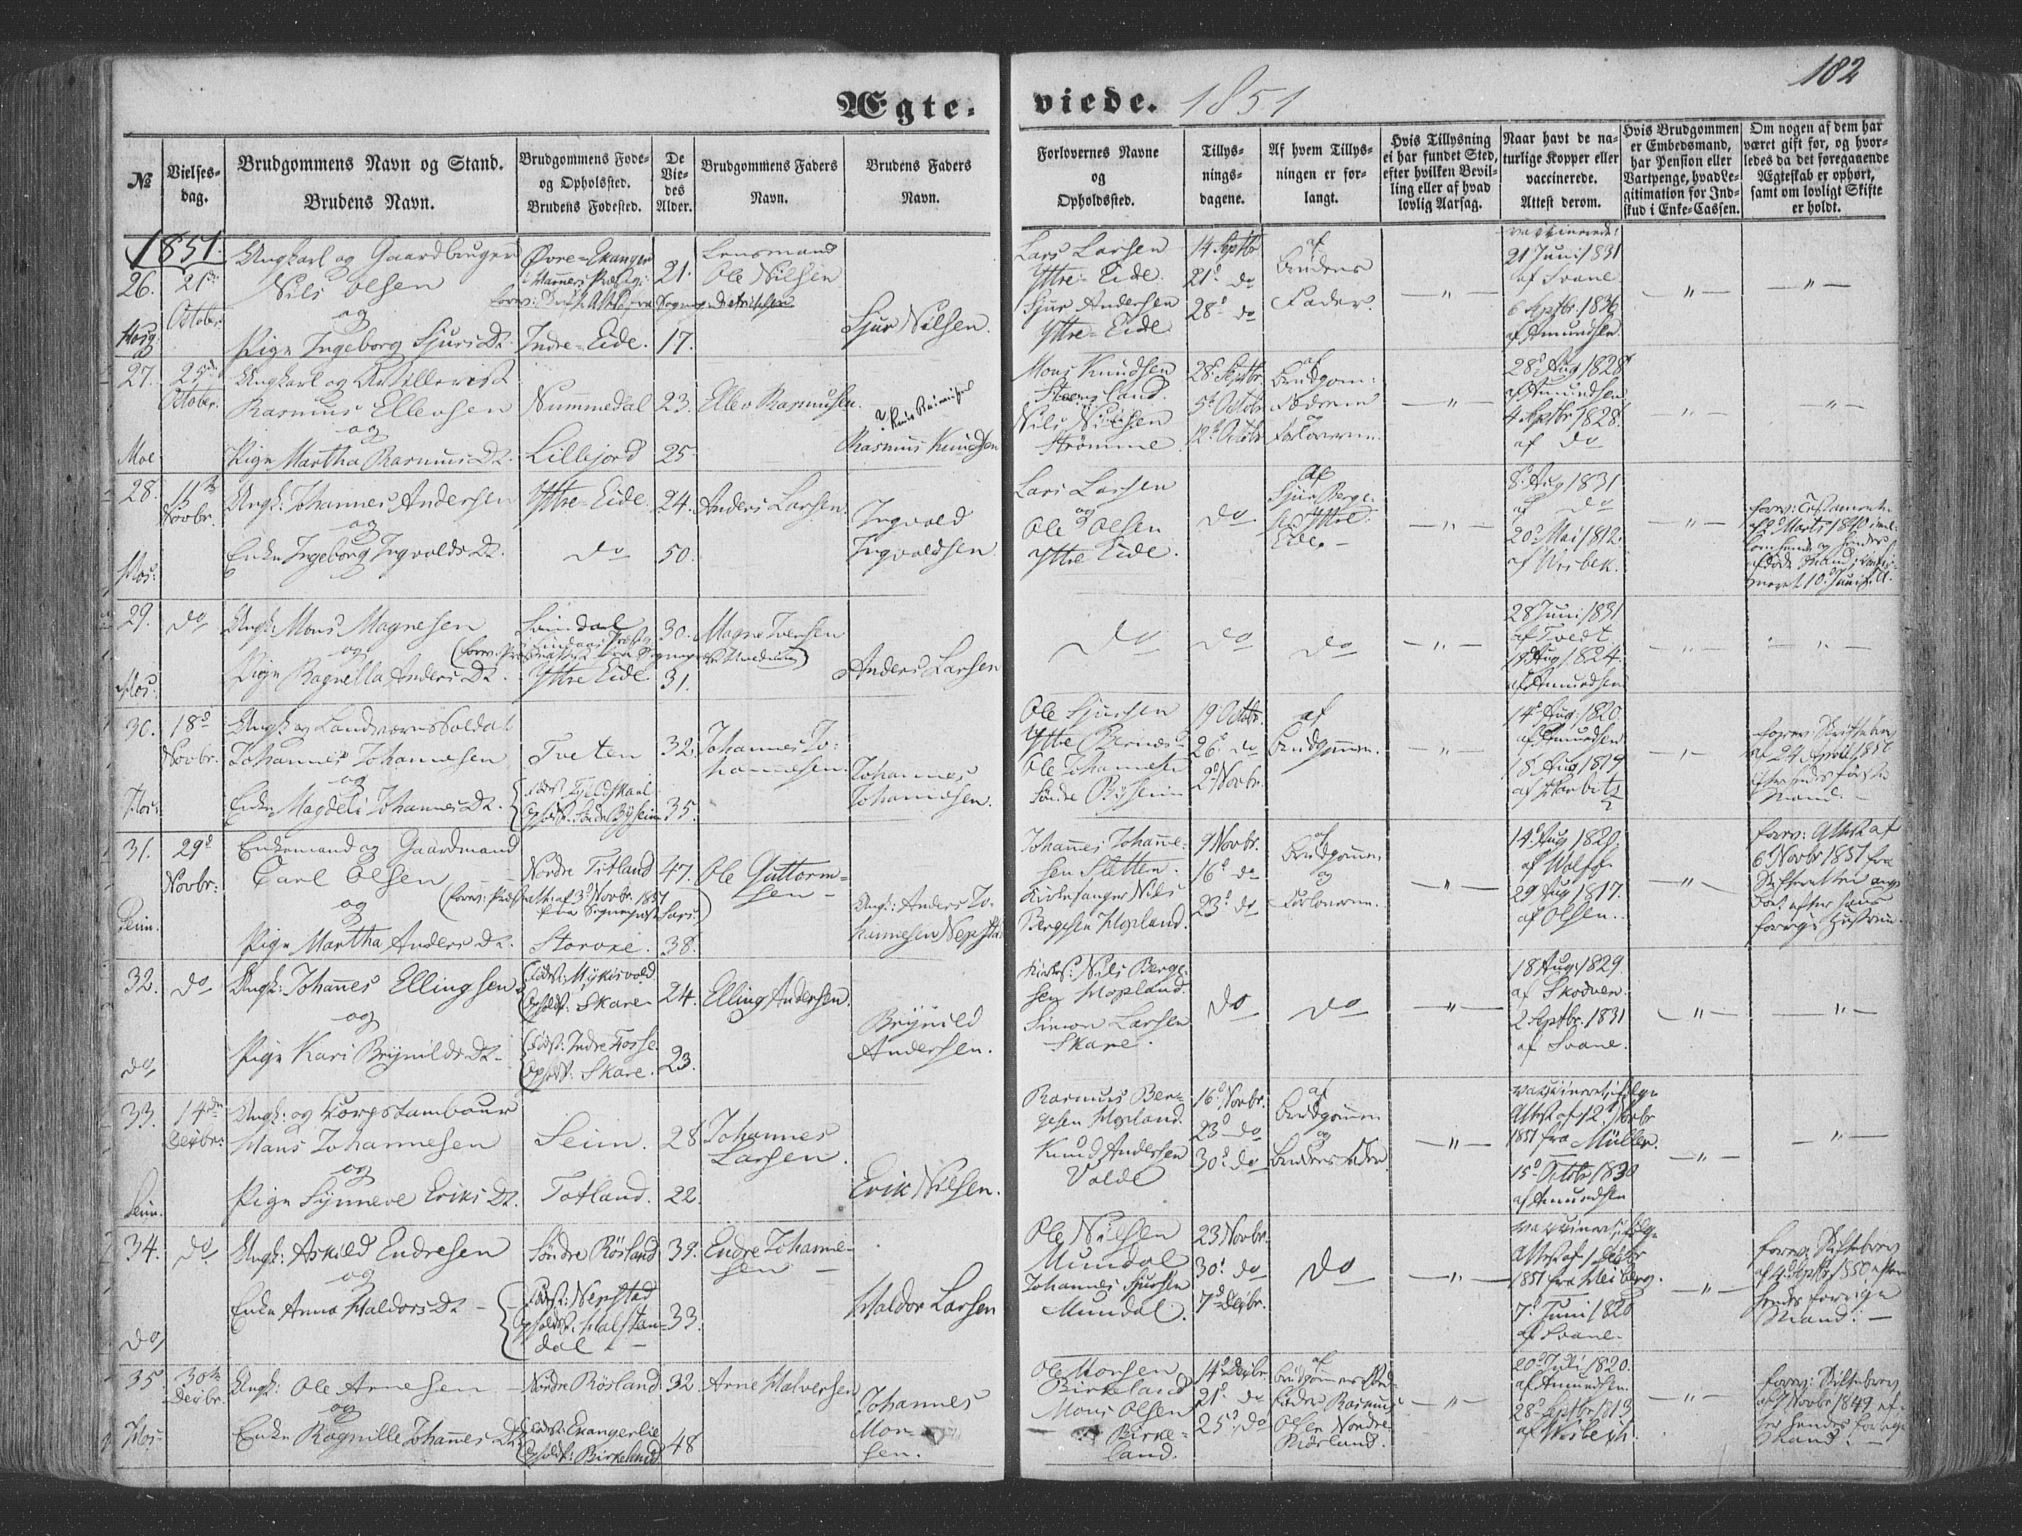 182
Ægte-
viede. 1851
№
Vielses-
dag.
Brudgommens Navn og Stand.
Brudens Navn.
Brudgommens Føde-
og Opholsted.
Brudens Fødested.
De
Vie-
des
Alder.
Brudgommens Faders
Navn.
Brudens Faders
Navn.
Forlovernes Navne
og
Opholdsted.
Tillys-
nings-
dagene.
Af hvem Tillys-
ningen er for-
langt.
Hvis Tillysning
ei har fundet Sted,
efter hvilken Bevil-
ling eller af hvad
lovlig Aarsag.
Naar havt de na-
turlige Kopper eller
vaccinerede.
Attest derom.
Hvis Brudgommen
er Embedsmand,
har Pension eller
Vartpenge, hvad Le-
gitimation for Ind-
skud i Enke-Cassen.
Om nogen af dem har
været gift før, og hvor-
ledes da det foregaaende
Ægteskab er ophørt,
samt om lovligt Skifte
er holdt.
1851.
26. 21de October
Ungkarl og Gaardbruger
Nils Olsen
og
Pige Ingeborg Sjurs Dr.
Øvre-Ekanger
Indre-Eide.
21.
17.
Lensmand
Ole Nilsen
Sjur Nilsen.
Lars Larsen
Yttre-Eide
Sjur Andersen
Yttre-Eide
14 Septbr
21d do
28d do
af
Brudens
Fader.
vaccinerede:
21 Juni 1831
af Svane
6 Septbr. 1836
af Amundsen
27. 25de October.
Moe
Ungkarl og Artillerist
Rasmus Ellevsen
og
Pige Martha Rasmus Dr.
Nummedal
Lillejord
23.
25
Ellev Rasmusen.
Rasmus Knudsen
Mons Knudsen
Nils Nilsen
Strømme
28 Septbr
5 Octob
12 Octob
af
Brudgom-
og
Forloverne.
28d Aug 1828
af Amundsen
4 Septbr 1828.
af do
28. Novbr.
Hos:
Ungk: Johannes Andersen
og
Enke Ingeborg Ingvalds Dr.
Yttre-Eide.
do
24.
50.
Anders Larsen.
Ingvald
Ingvaldsen
Lars Larsen
og
Ole Olsen
Yttre Eide.
do
af
Sjur Berge-
sen Yttre
Eide.
8 Aug 1831
af do
20 Mai 1812.
af Wisbek.
29. do
Hos:
Ungk: Mons Magnesen
og
Pige Ragnilla Anders Dr.
Yttre Eide
30.
31.
Magne Iversen
Anders Larsen
do
do
do
28 Juni 1831
af Tvedt
18 Aug 1824.
af Amundsen
30. 18d Novbr.
Hos:
Ungk og Landværnssoldat
Johannes Johannesen
og
Enke Magdeli Johannes Dr.
Tveten
Født: Fjeldskaal
Opholdst: Søndre Byseim
32.
35.
Johannes Jo-
hannesen.
Johannes
Johannesen.
Ole Sjursen
Ole Johannesen
Søndre Byseim
19 Octbr.
26d do
2d Novbr.
af
Brudgommen.
14d Aug. 1820.
af Amundsen
18 Aug 1819
af Harbitz
31. 29d Novbr:
Seim.
Enkemand og Gaardmand
Carl Olsen
og
Pige Martha Anders Dr.
Nordre Titland
Storvxe.
47.
38.
Ole Guttorm-
sen
Ungk: Anders Jo-
hannesen Nepstad
Johannes Johanne-
sen Sletten.
Kirkesanger Nils
Bergesen Hopland.
9 Novbr.
16d do
23d do
af
Brudgommen
og
Forloverne.
14d Aug 1820.
af Wolff
29 Aug 1817.
af Olsen.
forev: Attest af
6 Novbr 1851 fra
Skifteretten
32. do
do
Ungk: Johannes Ellingsen
og
Pige Kari Brynilds Dr.
Født: Mykisvold
Opholdst: Skare
Født: Indre Fosse.
Opholdst: Skare.
24.
23.
Elling Andersen.
Brynild
Andersen.
Kirkes: Nils Berge-
sen Hopland.
Simon Larsen
Skare.
do
do
18 Aug 1829.
af Skodven.
2 Septbr. 1831
af Svane.
33. 14de Decbr:
Seim.
Ungk: og Corpstambour
Hans Johannesen
og
Pige Synneve Eriks Dr.
Seim.
Totland.
28
22.
Johannes
Larsen.
Erik Nilsen.
Rasmus Ber-
gesen Hopland.
Knud Andersen
Volde
16d Novbr.
23d do
30d do
af
Brudgommen
og
Brudens Fader.
Attest af 12 Novbr
1851 fra Müller.
15d Octob 1830
af Amundsen
34. do
do
Ungk: Askild Endresen
og
Enke Anna Haldors Dr.
Søndre Røsland
Født: Nepstad
Opholdst: Halstan-
dal.
39.
33.
Endre Johanne-
sen
Haldor Larsen
Ole Nilsen
Mundal
Johannes Sjursen
Mundal.
23 Novbr.
30d do
7d Decbr.
do
Attest af 1 Decbr
1851 fra Heiberg.
7d Juni 1820
af Svane.
forev: Skiftebrev
af 4d Septbr 1850 efter
hendes forrige
Mand.
35 30te Decbr.
Hos:
Ungk: Ole Arnesen
og
Enke Ragnille Johannes Dr
Nordre Røsland
Født: Ekangerlie
Opholdst: Birkeland
32.
48
Arne Halversen
Johannes
Mon-
sen.
Ole Monsen
Birkeland
Mons Olsen
Birke-
land.
14d Decbr
21d do
25d do
af
Fader Rasmus
Olsen Nordre-
Røsland.
20d Juli 1820.
af Amundsen.
28d Septbr 1813
af Wisbech.
forev: Skiftebrev
af 7 Novbr 1849 ef-
ter hendes forrige
Mand.